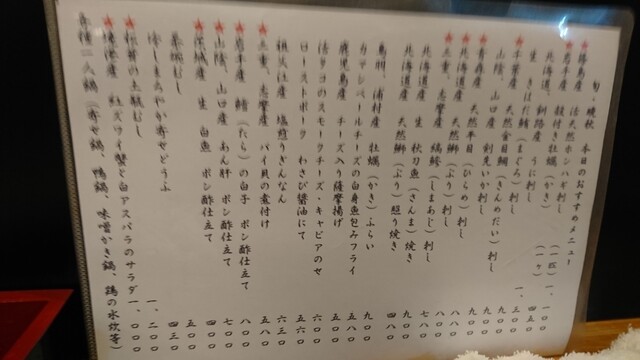 旬・晩秋 本日のおすすめメニュー
★徳島産 活天然ホシハギ刺し (一匹) 一、
★岩手産 殻付き牡蠣(かき) (一ケ) 四五〇
北海道、釧路産 うに刺し
生 きはだ鮪(まぐろ)刺し 一、三〇〇
★千葉産 天然金目鯛(きんめだい)刺し 九〇〇
山陰、山口産 剣先いか刺し 九〇〇
★青森産 天然平目(ひらめ)刺し 九〇〇
★北海道産 天然鰤(ぶり)刺し 八八〇
★三重、志摩産 縞鯵(しまあじ)刺し 八八〇
北海道産 生 秋刀魚(さんま)焼き 七八〇
北海道産 天然鰤(ぶり)照り焼き 八八〇
鳥羽、浦村産 牡蠣(かき)ふらい 九〇〇
カマンベールチーズの白身魚包みフライ 四八〇
鹿児島産 チーズ入り薩摩揚げ 五八〇
活タコのスモークチーズ・キャビアのせ 六〇〇
ローストポーク わさび醤油にて 五五〇
祖父江産 塩煎りぎんなん 六三〇
★三重、志摩産 バイ貝の煮付け 五八〇
★岩手産 鱈(たら)の白子 ポン酢仕立て 八〇〇
★山陰、山口産 あん肝 ポン酢仕立て 七〇〇
★茨城産 生 白魚 ポン酢仕立て 四〇〇
冷しまろやか寄せどうふ 五〇〇
茶碗むし 四三〇
★松茸の土瓶むし 一、二〇〇
★境港産 紅ズワイ蟹と白アスパラのサラダ 一、〇〇〇
二人鍋(寄せ鍋、鴨鍋、味噌かき鍋、鶏の水炊等)